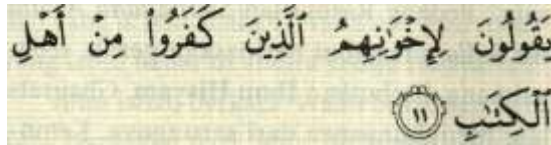 يَقُولُونَ لِإِخْوَٰنِهِمُ ٱلَّذِينَ كَفَرُوا۟ مِنْ أَهْلِ
ٱلْكِتَٰبِ ١١